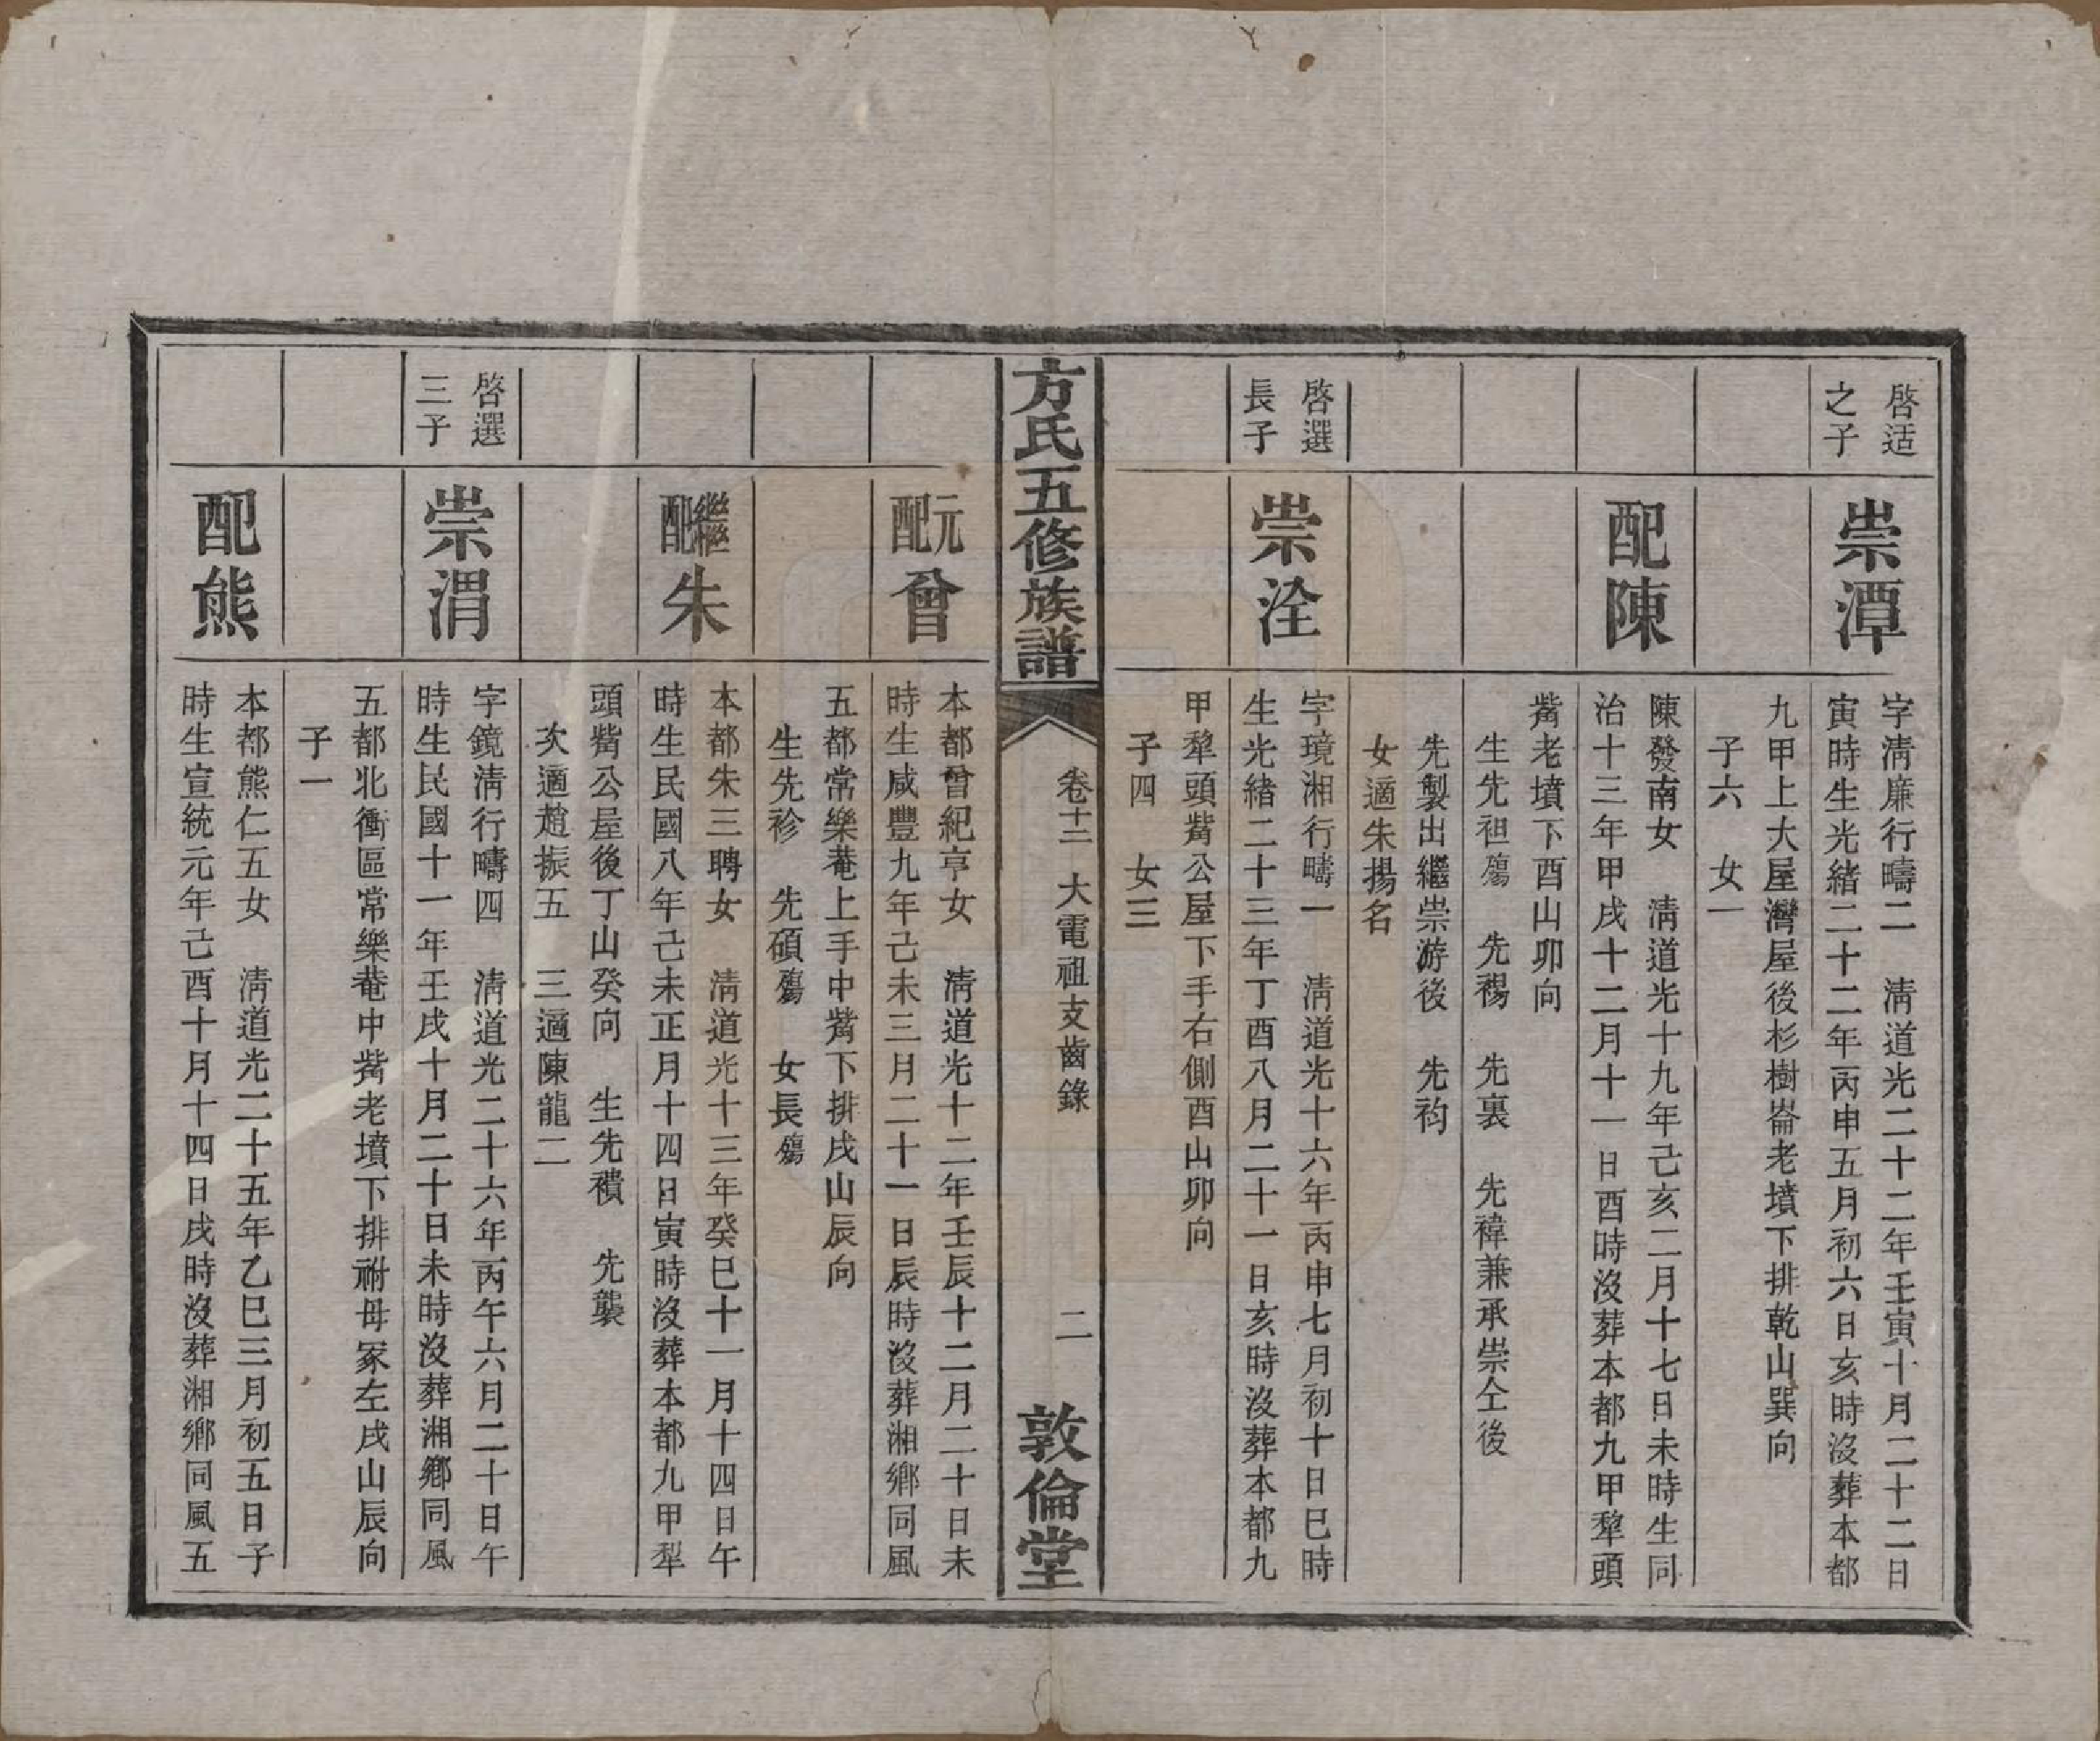 啓适
之子
崇潭
字淸廉行疇二　淸道光二十二年壬寅十月二十二日
寅時生光緒二十二年丙申五月初六日亥時沒葬本都
九甲上大屋灣屋後杉樹崙老墳下排乾山巽向
子六　女一
配陳
陳發南女　淸道光十九年己亥二月十七日未時生同
治十三年甲戌十二月十一日酉時沒葬本都九甲犂頭
觜老墳下酉山卯向
生先袒殤　先禓　先裏　先褘兼承崇仝後
先製出繼崇游後　先袀
女適朱揚名
啓選
長子
崇洤
字璄湘行疇一　淸道光十六年丙申七月初十日巳時
生光緒二十三年丁酉八月二十一日亥時沒葬本都九
甲犂頭觜公屋下手右側酉山卯向
子四　女三
方氏五修族譜
卷十二　大電祖支齒錄
二
敦倫堂
元配曾
本都曾紀亨女　淸道光十二年壬辰十二月二十日未
時生咸豐九年己未三月二十一日辰時沒葬湘鄕同風
五都常樂菴上手中觜下排戌山辰向
生先袗　先碩殤　女長殤
繼配朱
本都朱三聘女　淸道光十三年癸巳十一月十四日午
時生民國八年己未正月十四日寅時沒葬本都九甲犁
頭觜公屋後丁山癸向　生先䙡　先襲
次適趙振五　三適陳龍二
啓選
三子
崇渭
字鏡淸行疇四　淸道光二十六年丙午六月二十日午
時生民國十一年壬戌十月二十日未時沒葬湘鄕同風
五都北衝區常樂菴中觜老墳下排祔母冢左戌山辰向
子一
配熊
本都熊仁五女　淸道光二十五年乙巳三月初五日子
時生宣統元年己酉十月十四日戌時沒葬湘鄕同風五